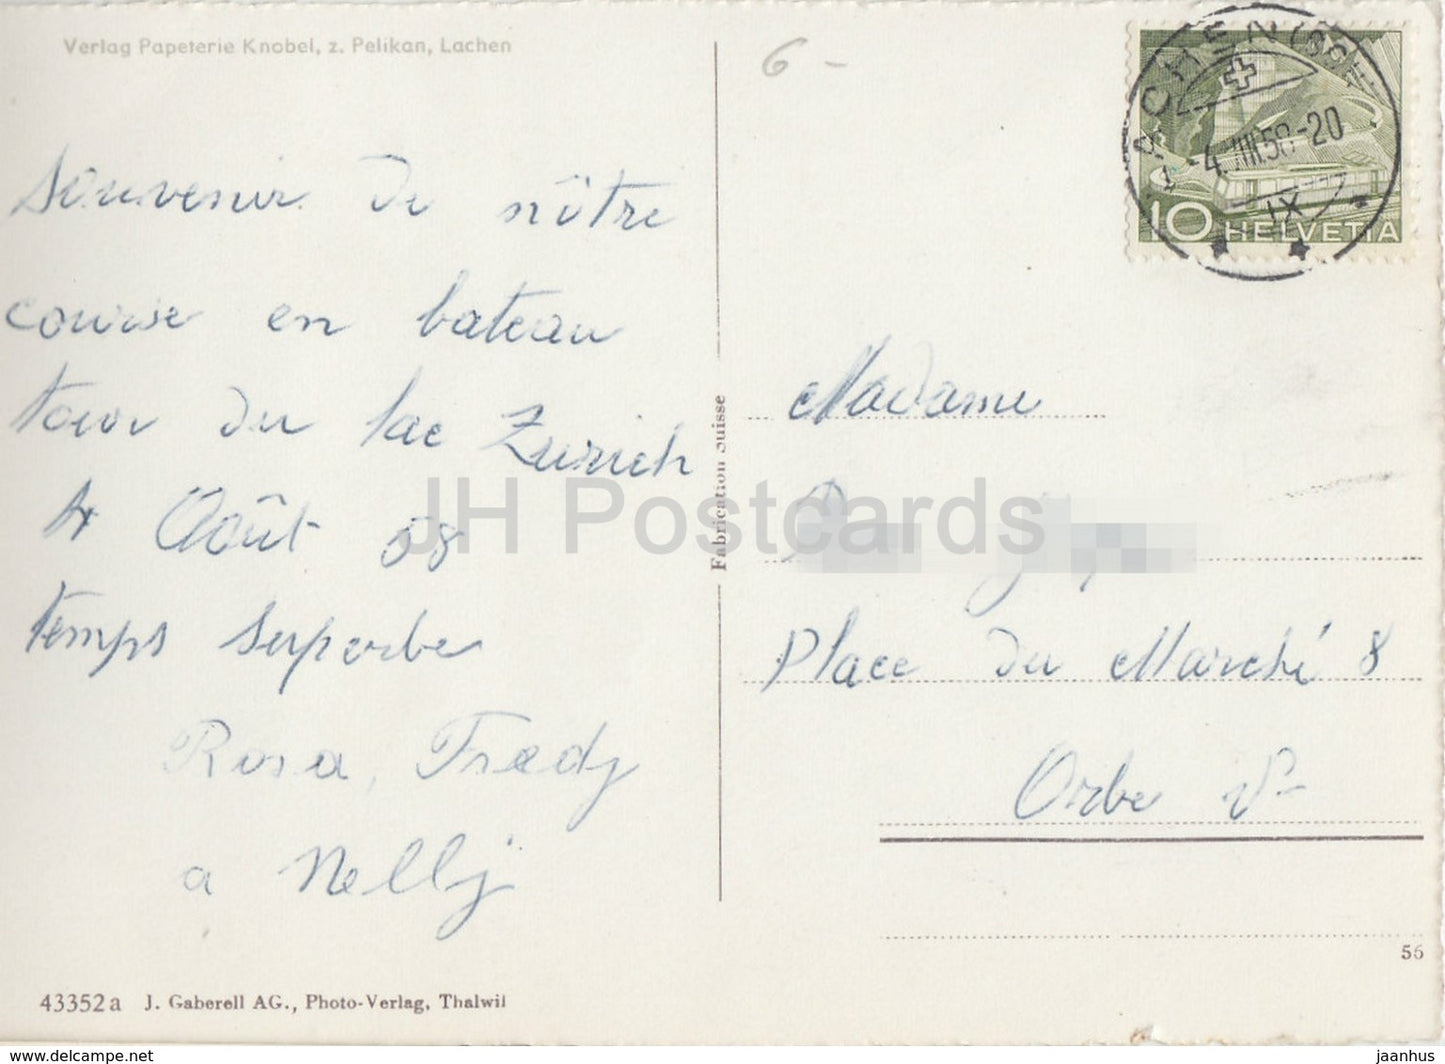 Verlag Papeterie Knobel, z. Pelikan, Lachen
6 -
LACHEN (SCHWYZ)
-4.VIII.58-20
IX
10 HELVETIA
Souvenir de nôtre
course en bateau
tour du lac Zurich
4 Août 58
temps superbe
Rosa, Fredy
a Nelly
Fabrication Suisse
Madame
Place du Marché 8
Orbe Vd
56
43352a J. Gaberell AG., Photo-Verlag, Thalwil
JH Postcards
delcampe.net
jaanhus